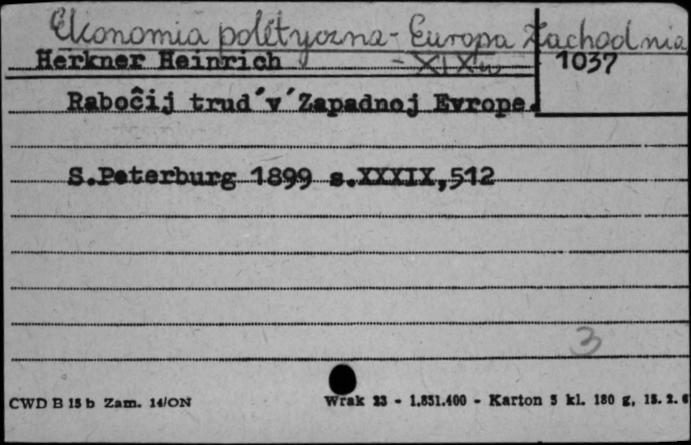 Ekonomia polityczna - Europa Zachodnia
- XIX w
Herkner Heinrich
1037
Raboĉij trud´v´Zapadnoj Evrope.
S.Peterburg 1899 s.XXXIX,512
3
CWD B 15 b Zam. 14/ON
Wrak 23 - 1.851.400 - Karton 5 kl. 180 g, 15. 2. 6